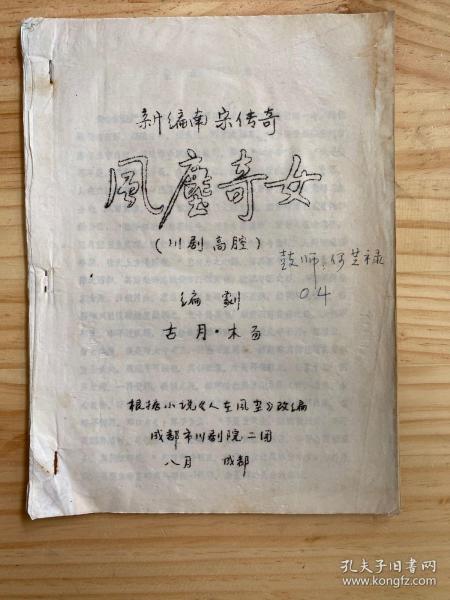 新编南宋传奇
風塵奇女
(川剧高腔)
鼓师:何芝禄
04
编剧
古月·木
根据小说《人在风尘》改编
成都市川剧院二团
八月 成都
孔夫子旧书网
www.kongfz.com